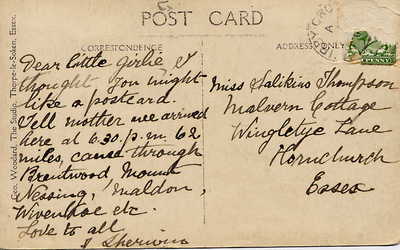 POST CARD
CORRESPONDENCE
ADDRESS ONLY
Geo. Woodard, The Studio, Thorpe-le-Soken, Essex.
Dear little girlie I
thought you might
like a postcard.
Tell mother we arrived
here at 6.30. p.m. 62
miles, came through
Brentwood Mount
Nessing, Maldon,
Wivenhoe etc.
Love to all
Miss Salikins Thompson
Malvern Cottage
Wingletye Lane
Hornchurch
Essex
PENNY